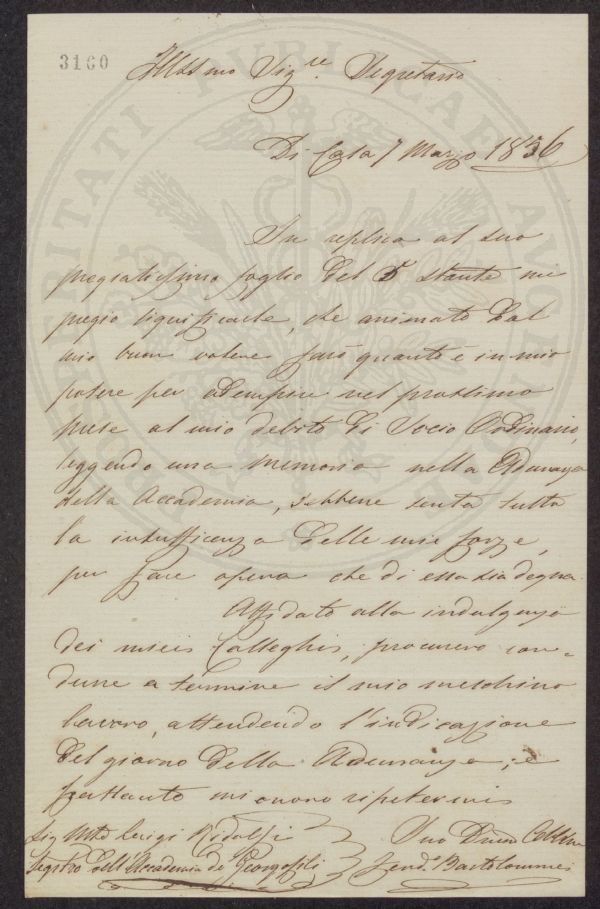 3160
Illmo Sigre. Segretario
Di Casa 7 Marzo 1856
In replica al suo
pregiatissimo foglio del 5 stante mi
pregio significarle, che animato dal
mio buon volere farò quanto è in mio
potere per adempire nel prossimo
mese al mio debito di Socio Ordinario,
leggendo una memoria nella Adunanza
della Accademia, sebbene senta tutta
la insufficenza delle mie forze,
per fare opera che di essa sia degna.
Affidato alla indulgenza
dei miei Colleghi, procurerò con=
durre a termine il mio meschino
lavoro, attendendo l'indicazione
del giorno della Adunanza; e
frattanto mi onoro ripetermi
Sig Luigi Ridolfi
Segrio dell'Accademia de Georgofili
Suo Devmo
Ferd. Bartolommei
PROSPERITATI PUBLICAE AUGENDAE